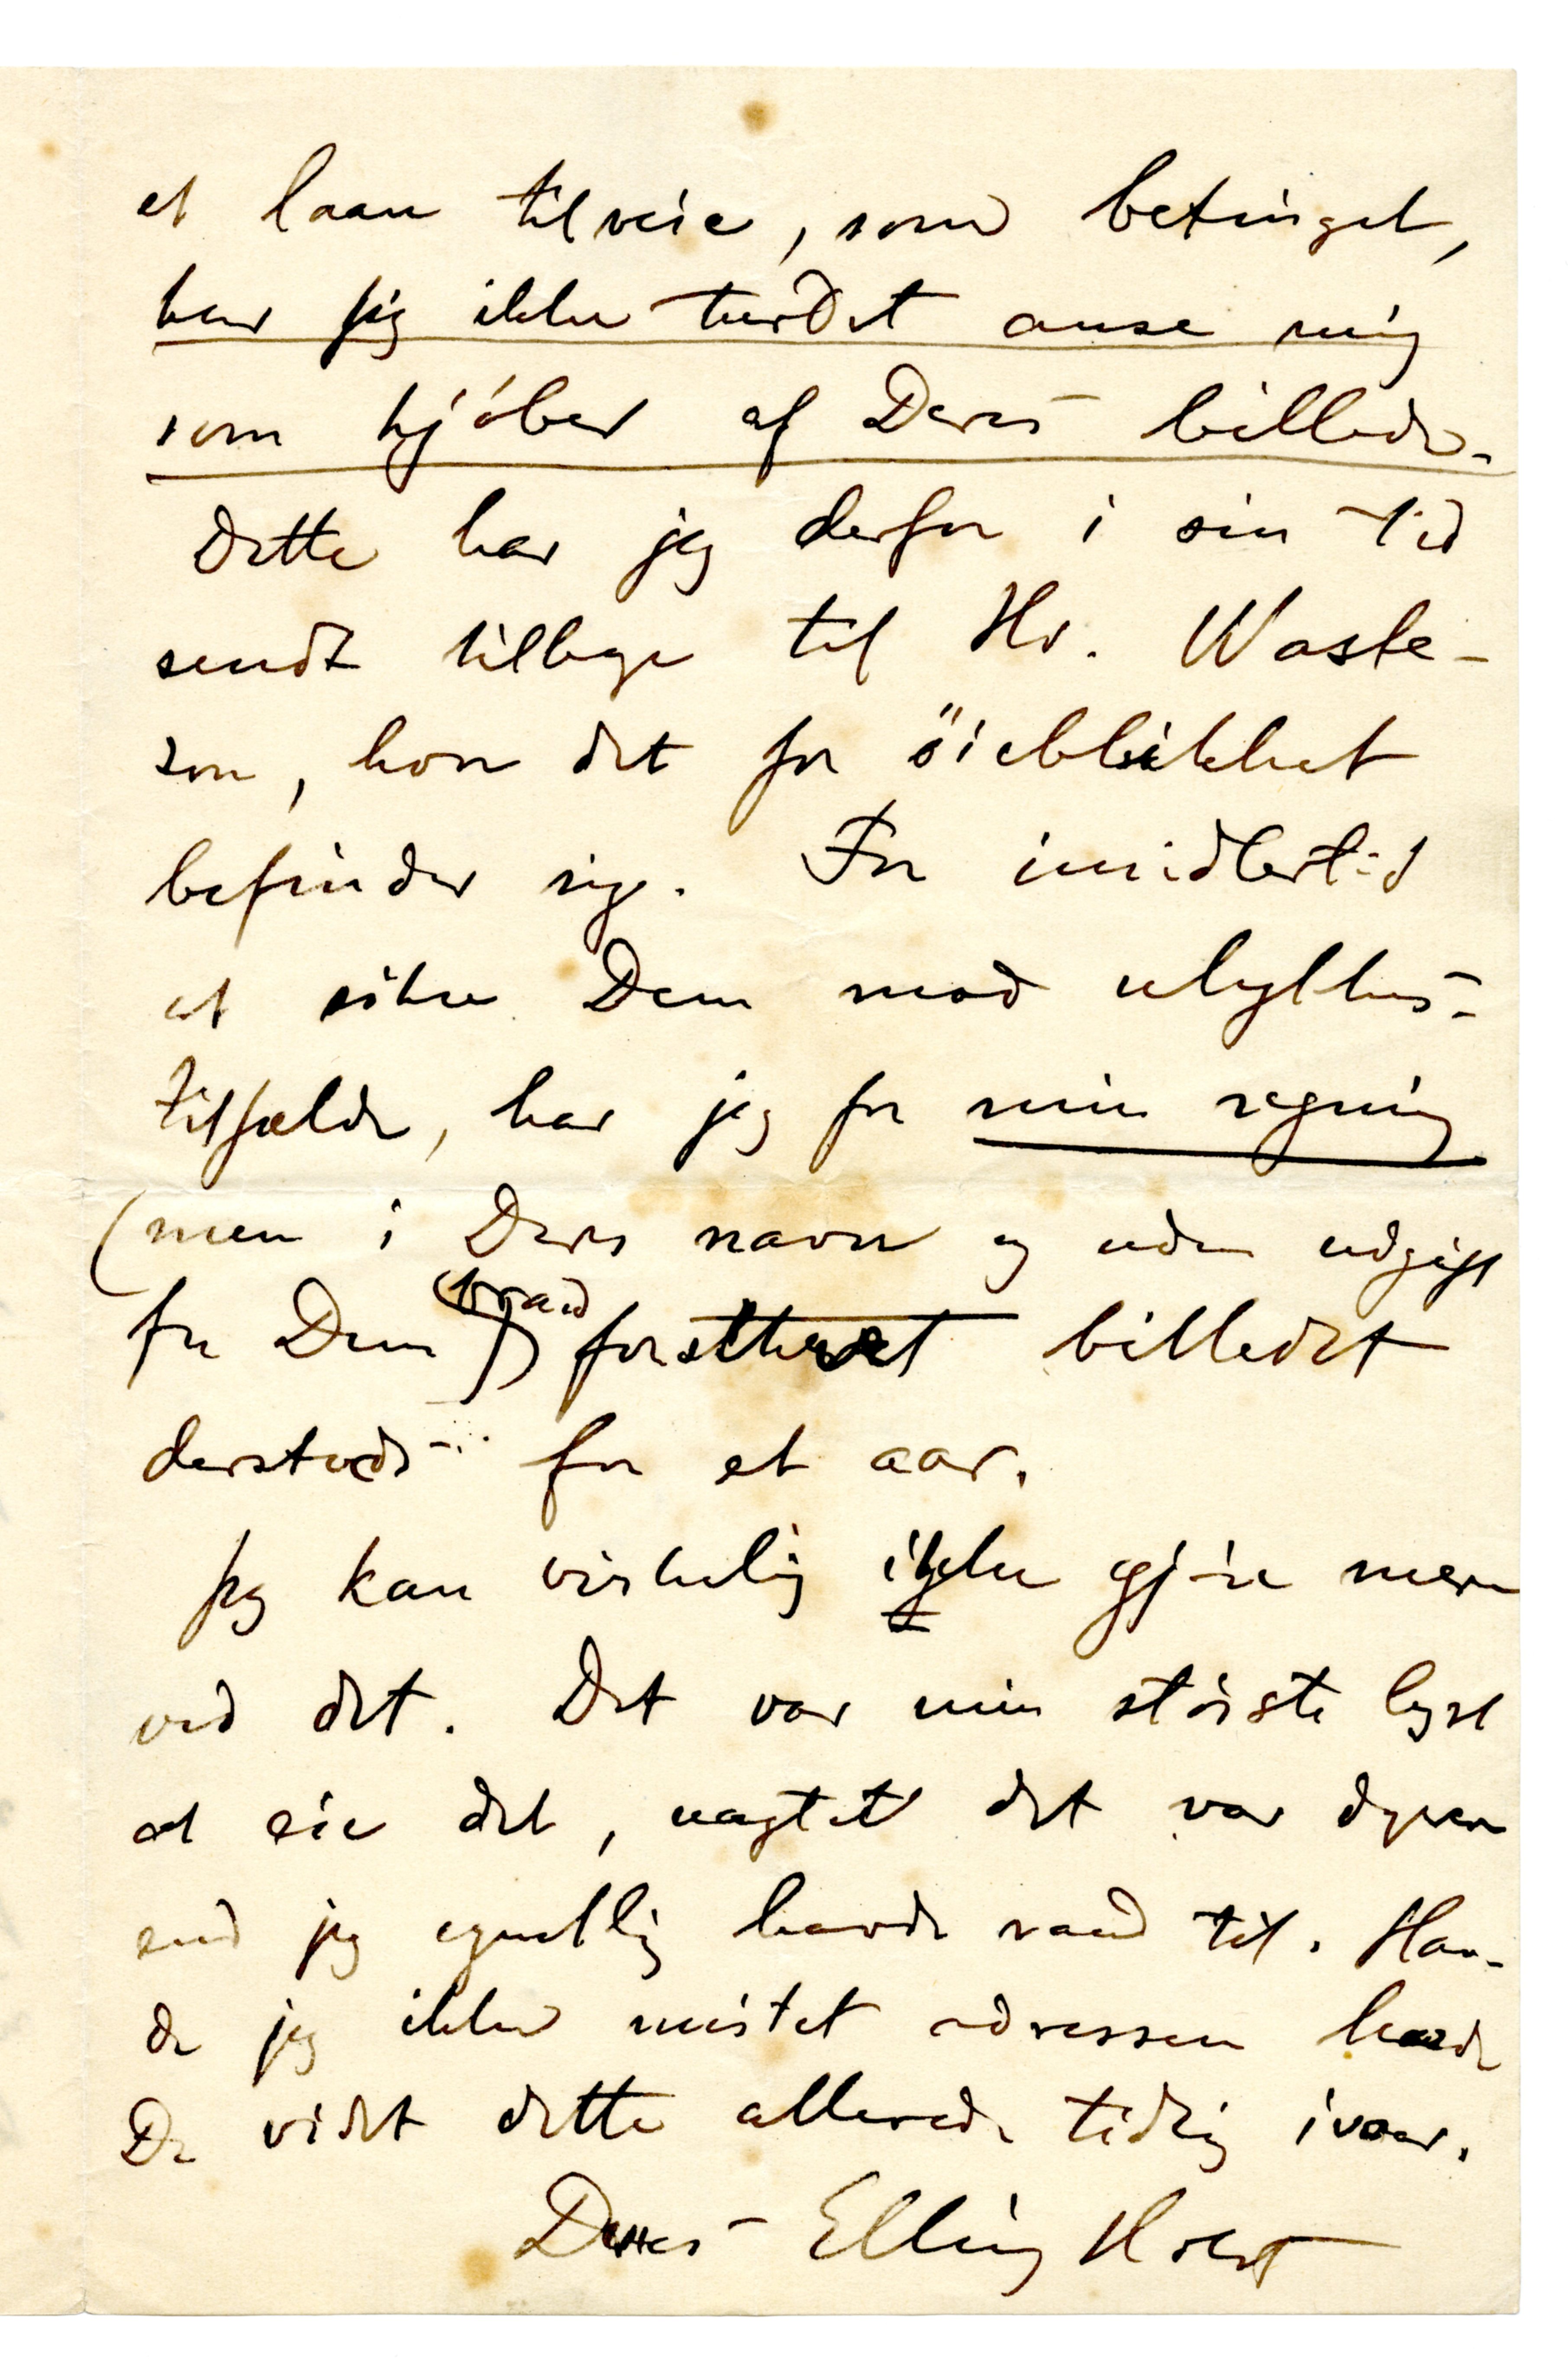 et laan tilveie, som betinget,
har jeg ikke turdet anse mig
som kjöber af Deres billede.
Dette har jeg derfor i sin tid
sendt tilbage til Hr. Waste-
son, hvor det for öieblikket
befinder sig. For imidlertid
at sikre Dem mod ulykkes-
tilfælde, har jeg for min regning
(men i Deres navn og uden udgift
for Dem) brandforsikret billedet
dersteds for et aar.
Jeg kan virkelig ikke gjöre mere
ved det. Det var min störste lyst
at eie det, uagtet det var dyrere
end jeg egentlig havde raad til. Hav-
de jeg ikke mistet adressen havde
De vidst dette allerede tidlig ivaar.
Deres Elling Holst